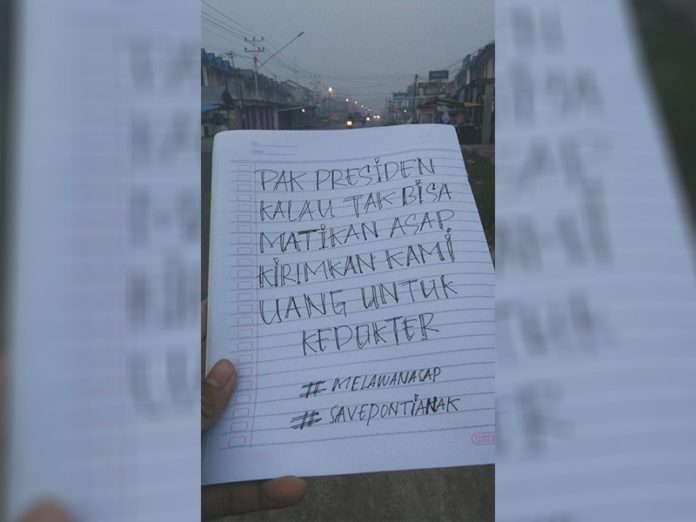 PAK PRESIDEN
KALAU TAK BISA
MATIKAN ASAP
KIRIMKAN KAMI
UANG UNTUK
KEDOKTER
# MELAWANASAP
# SAVEPONTIANAK